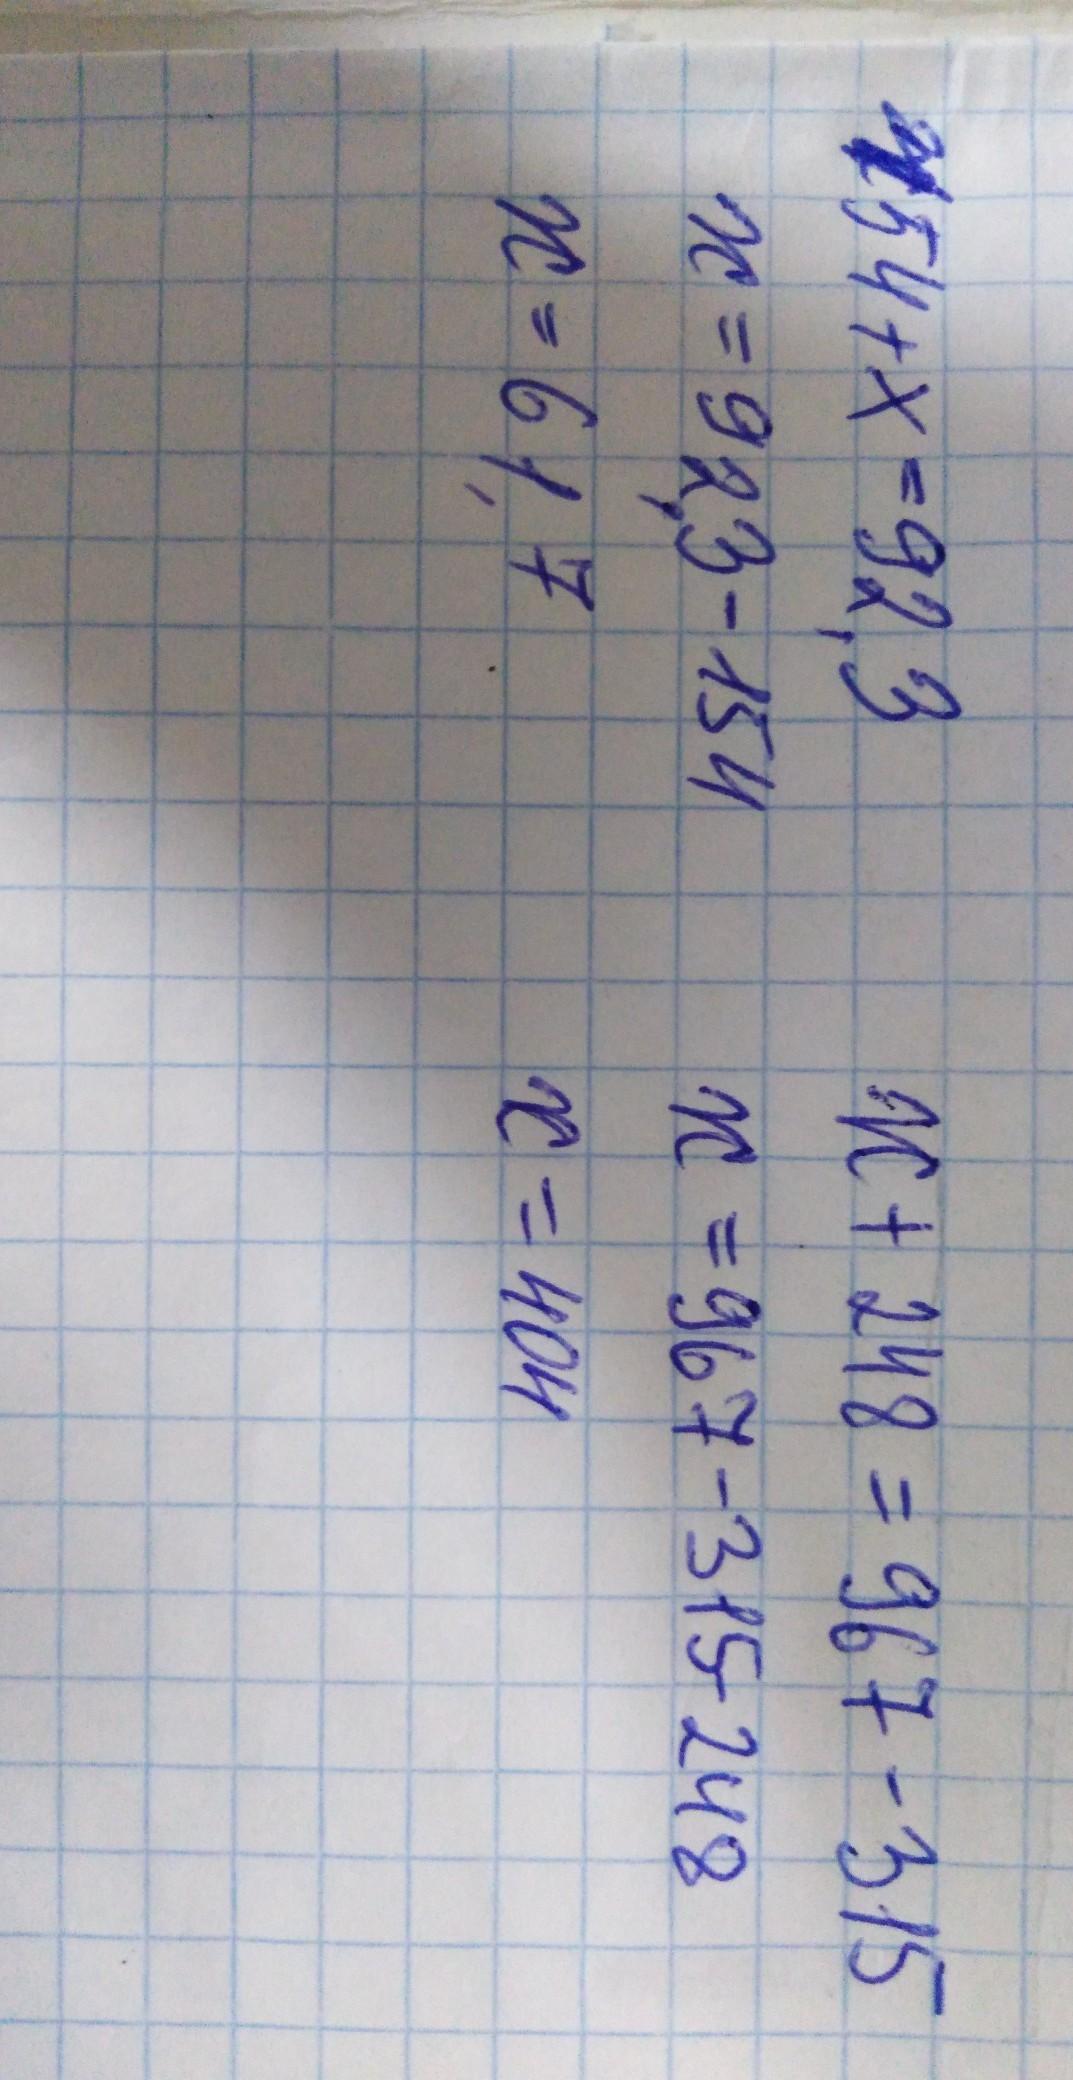 154 + x = 92,3
x = 92,3 - 154
x = 61,7
x + 248 = 967 - 315
x = 967 - 315 - 248
x = 404